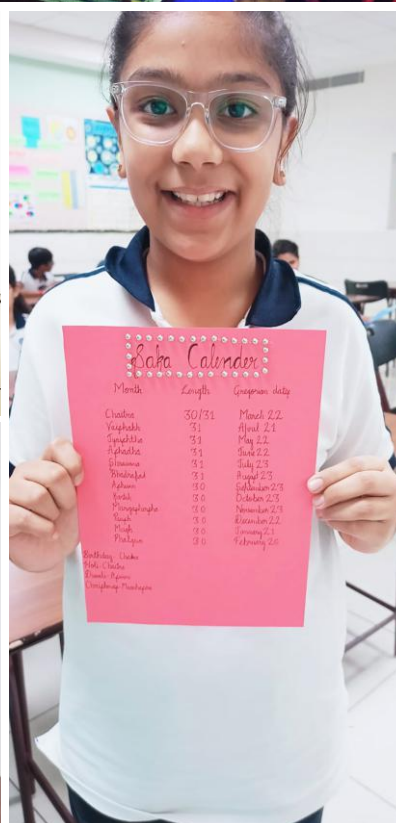 Saka Calender
Month Length Gregorian date
Chaitra 30/31 March 22
Vaiphakh 31 April 21
Jyaishtha 31 May 22
Aphadha 31 June 22
Shravana 31 July 23
Bhadrapad 31 August 23
Aphwin 30 September 23
Kartik 30 October 23
30 November 23
Paush 30 December 22
Magh 30 January 21
Phalgun 30 February 20
Birthday -
Holi - Chaitra
Diwali -